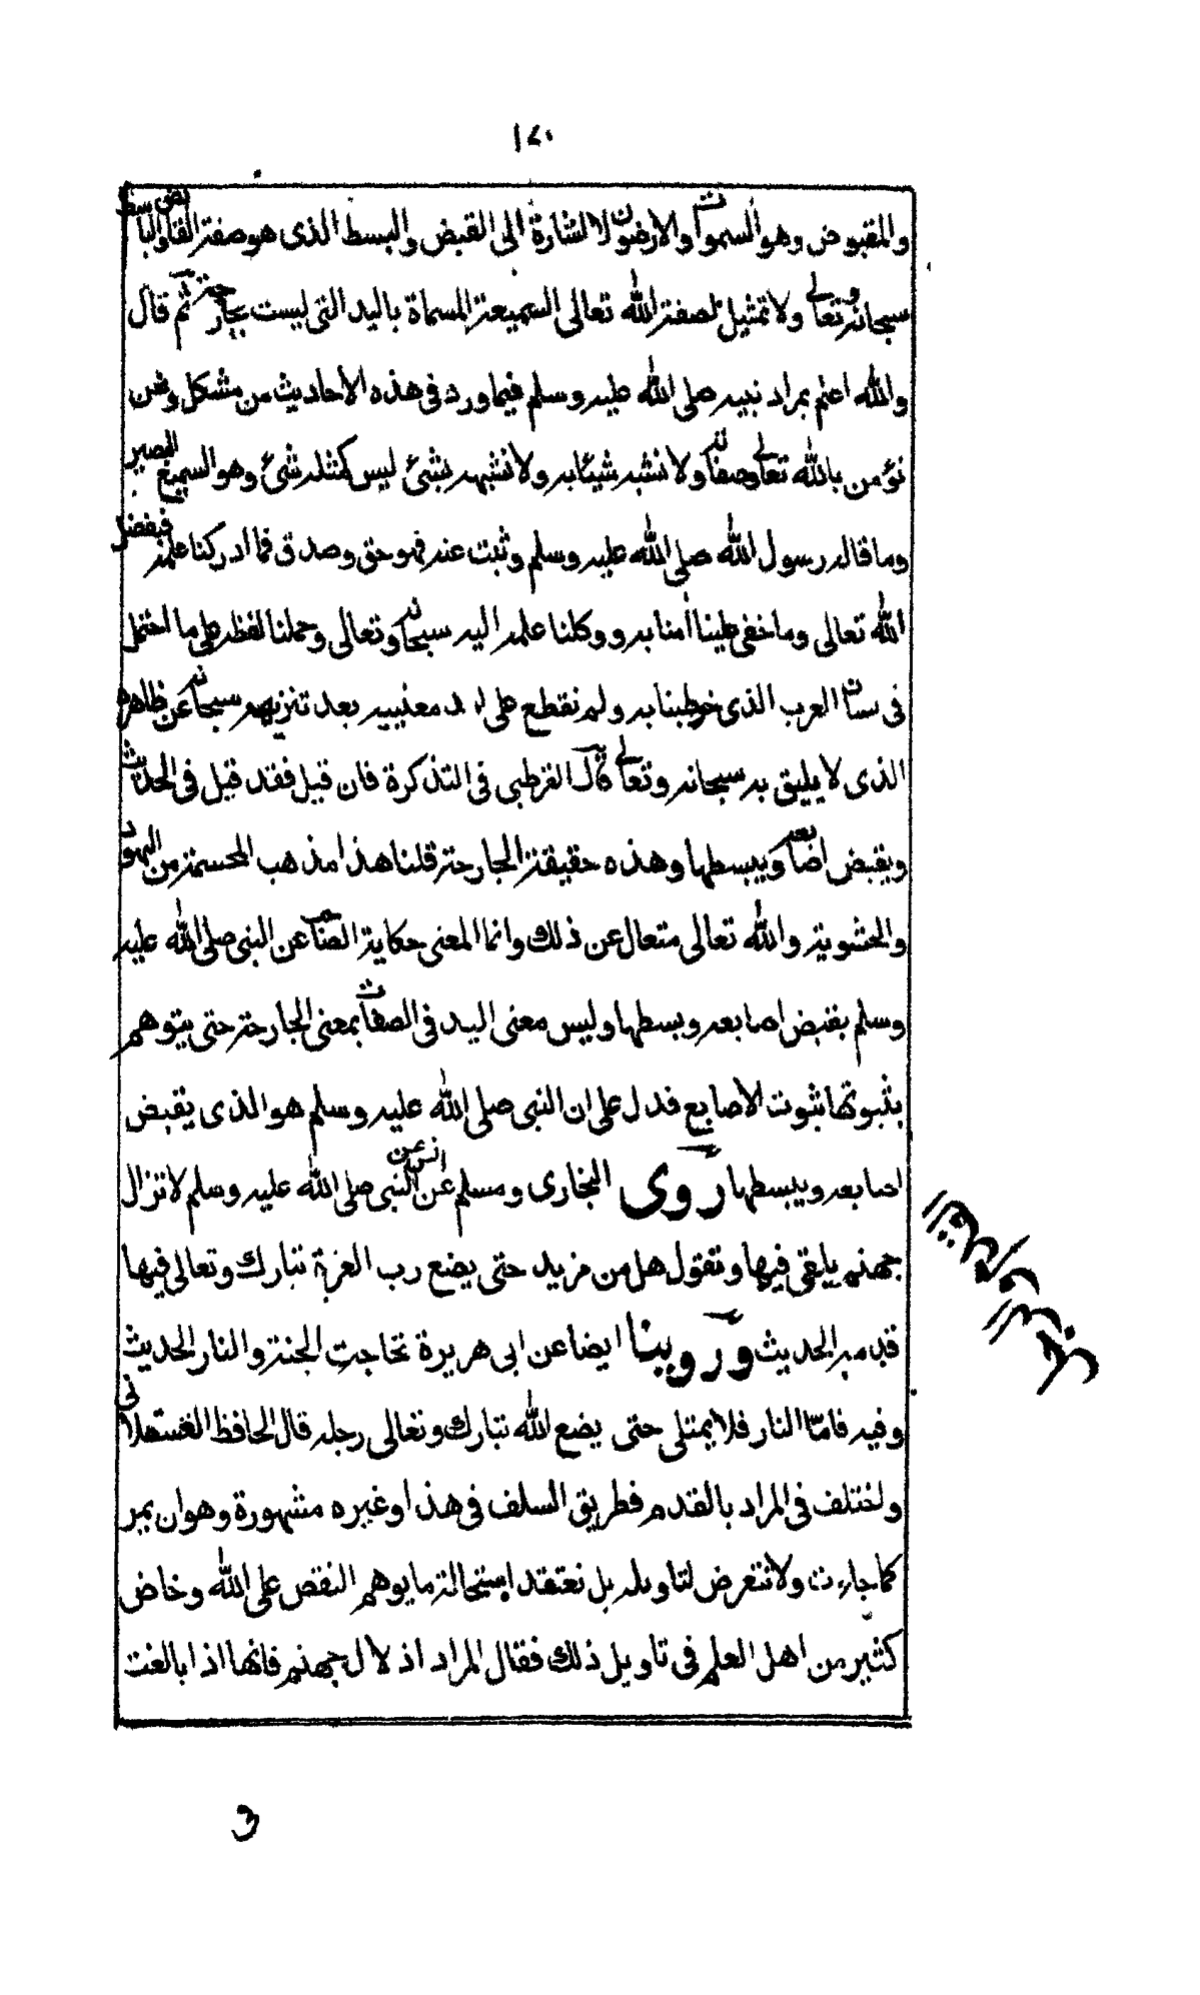 ١٧٠
والمقبوض وهو السموات والارضون لا اشارة الى القبض والبسط الذى هو صفة القابض والباسط
سبحانه وتعالى ولا تمثيل لصفة الله تعالى السميعة المسماة باليد التى ليست بجارحة ثم قال
والله اعلم بمراد نبيه صلى الله عليه وسلم فيما ورد فى هذه الاحاديث من مشكل ونحن
نؤمن بالله تعالى وصفاته ولا نشبه شيئا به ولا نشبهه بشئ ليس كمثله شئ وهو السميع البصير
وما قاله رسول الله صلى الله عليه وسلم وثبت عنه فهو حق وصدق فما ادركنا علمه فبفضل
الله تعالى وما خفى علينا امنا به ووكلنا علمه اليه سبحانه وتعالى وحملنا لفظه على ما احتمل
فى لسان العرب الذى خوطبنا به ولم نقطع على احد معنييه بعد تنزيهه سبحانه عن ظاهره
الذى لا يليق به سبحانه وتعالى قال القرطبى فى التذكرة فان قيل فقد قيل فى الحديث
ويقبض اصابعه ويبسطها وهذه حقيقة الجارحة قلنا هذا مذهب المجسمة من اليهود
والحشوية والله تعالى متعال عن ذلك وانما المعنى حكاية الصحابى عن النبى صلى الله عليه
وسلم بقبض اصابعه وبسطها وليس معنى اليد فى الصفات بمعنى الجارحة حتى يتوهم
بثبوتها ثبوت الاصابع فدل على ان النبى صلى الله عليه وسلم هو الذى يقبض
اصابعه ويبسطها روى البخارى ومسلم عن انس عن النبى صلى الله عليه وسلم لا تزال
جهنم يلقى فيها وتقول هل من مزيد حتى يضع رب العزة تبارك وتعالى فيها
قدمه الحديث وروينا ايضا عن ابى هريرة تحاجت الجنة والنار الحديث
وفيه فاما النار فلا يمتلى حتى يضع الله تبارك وتعالى رجله قال الحافظ العسقلانى
واختلف فى المراد بالقدم فطريق السلف فى هذا وغيره مشهورة وهو ان يمر
كما جاءت ولا نتعرض لتاويله بل نعتقد استحالة ما يوهم النقص على الله وخاض
كثير من اهل العلم فى تاويل ذلك فقال المراد اذلال جهنم فانها اذا بالغت
القدم والرجل